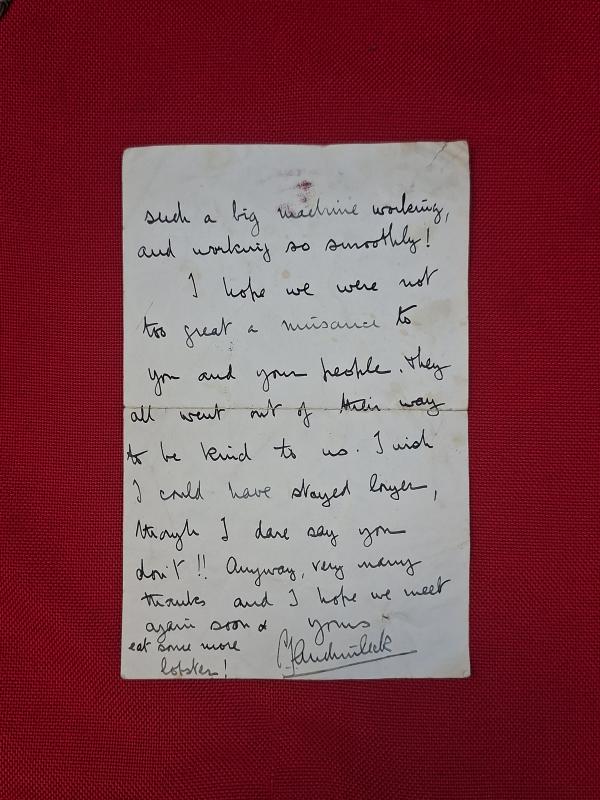 such a big machine working,
and working so smoothly!
I hope we were not
too great a nuisance to
you and your people. They
all went out of their way
to be kind to us. I wish
I could have stayed longer,
though I dare say you
don't!! Anyway, very many
thanks and I hope we meet
again soon & yours
eat some more
lobster!
C J Auchinleck